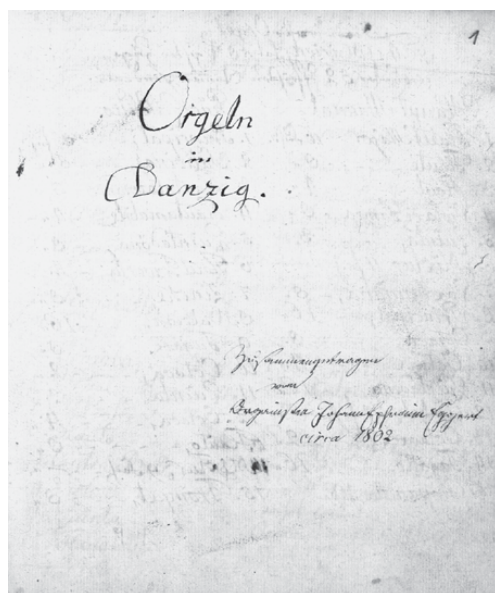 1
Orgeln
in
Danzig.
Zusammengetragen
von
Organisten Johann Ephraim Eggert
circa 1802